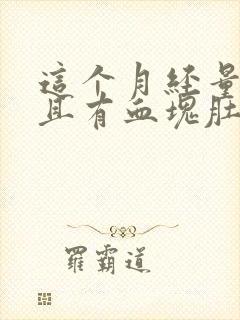 這个月经量
且有血塊肚
羅霸道